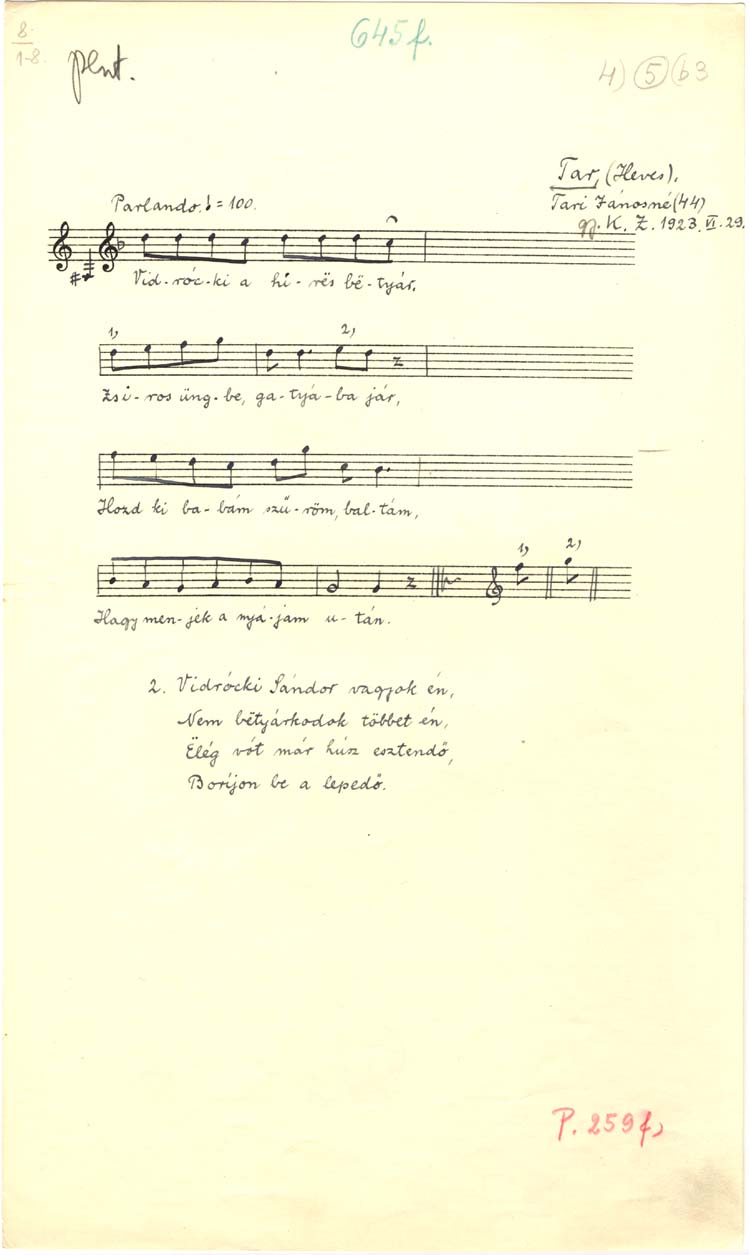 8.
1-8.
645f.
4) 5 (b3
Tar, (Heves).
Parlando. ♪ = 100.
Tari Jánosné (44)
K. Z. 1923. VI. 29.
Vid-róc-ki a hí-rës bë-tyár,
1, 2,
Zsi-ros üng-be, ga-tyá-ba jár,
Hozd ki ba-bám szű-röm, bal-tám,
1, 2,
Hagy men-jek a nyá-jam u-tán.
2. Vidrócki Sándor vagyok én,
Nem bëtyárkodok többet én,
Ëlég vót már húsz esztendő,
Boríjon be a lepedő.
P. 259f,